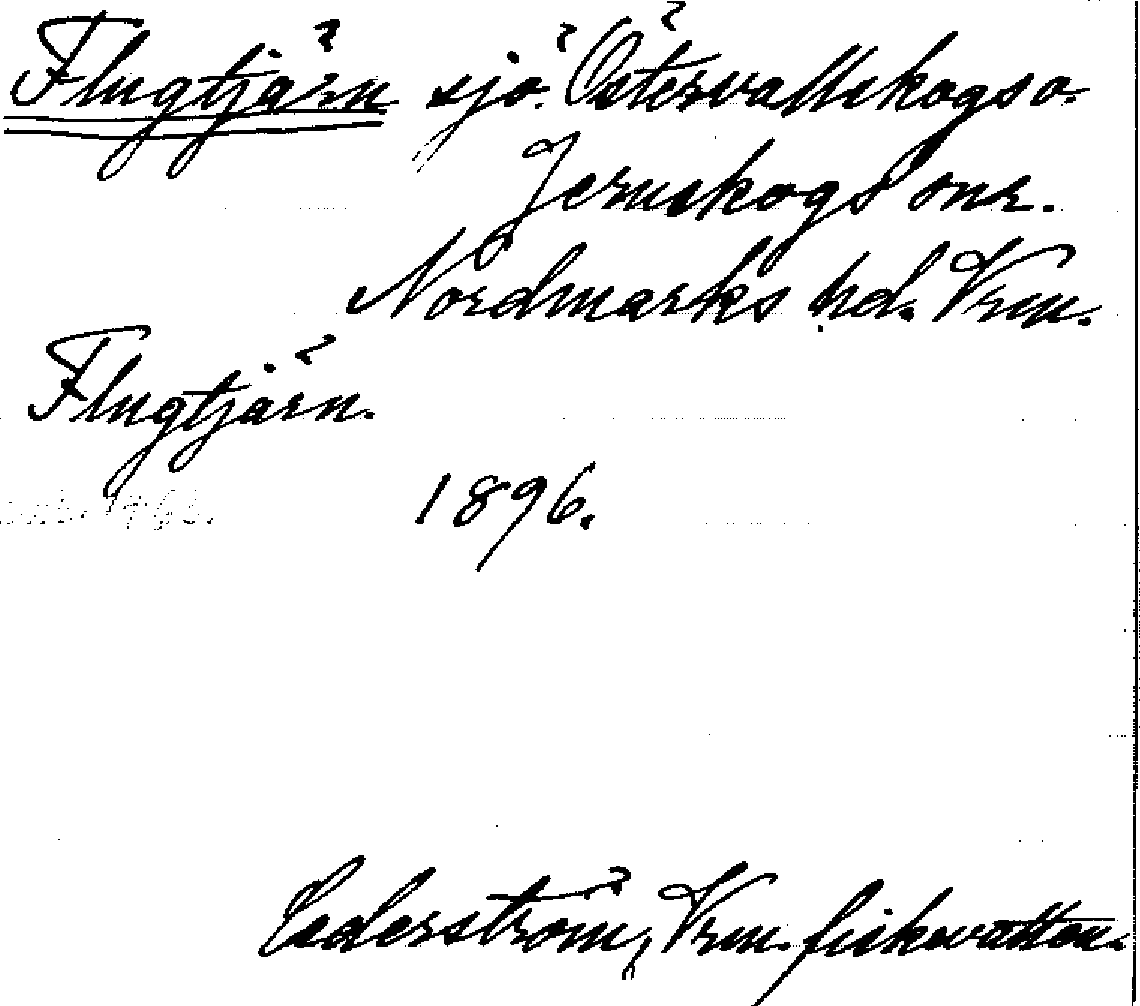 Flugtjärn sjö. Östervallskogs o.
Jernskogs snr.
Nordmarks hd. Vrm.
Flugtjärn.
1896.
Cederström, Vrm. fiskevatten.